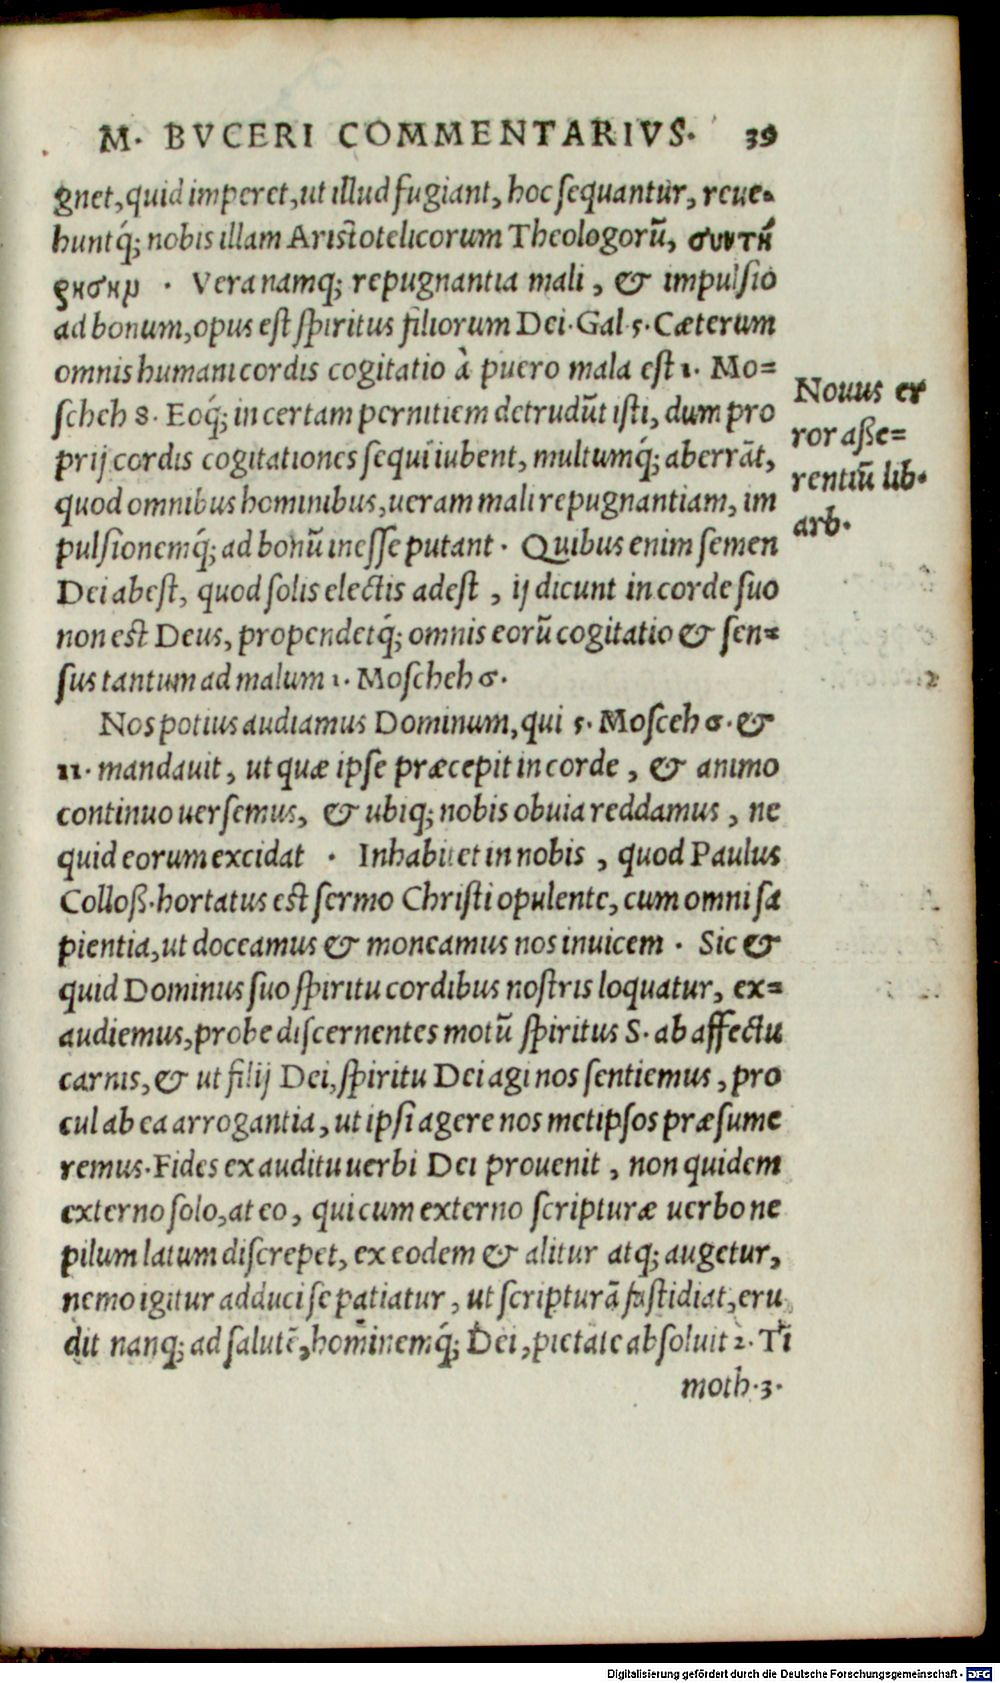 M. BVCERI COMMENTARIVS. 39
gnet, quid imperet, ut illud fugiant, hoc sequantur, reue-
huntq́; nobis illam Aristotelicorum Theologorū, συντή
ρησιν . Vera namq; repugnantia mali, & impulsio
ad bonum, opus est spiritus filiorum Dei. Gal. 5. Cæterum
omnis humani cordis cogitatio à puero mala est 1. Mo=
scheh 8. Eoq́; in certam pernitiem detrudūt isti, dum pro
prij cordis cogitationes sequi iubent, multumq́; aberrāt,
quod omnibus hominibus, ueram mali repugnantiam, im
pulsionemq́; ad bonū inesse putant. Quibus enim semen
Dei abest, quod solis electis adest, ij dicunt in corde suo
non est Deus, propendetq́; omnis eorū cogitatio & sen=
sus tantum ad malum 1. Moscheh 6.
Nos potius audiamus Dominum, qui 5. Mosceh 6. &
11. mandauit, ut quæ ipse præcepit in corde, & animo
continuo uersemus, & ubiq; nobis obuia reddamus, ne
quid eorum excidat . Inhabitet in nobis, quod Paulus
Colloß. hortatus est sermo Christi opulente, cum omni sa
pientia, ut doceamus & moneamus nos inuicem . Sic &
quid Dominus suo spiritu cordibus nostris loquatur, ex=
audiemus, probe discernentes motū spiritus S. ab affectu
carnis, & ut filij Dei, spiritu Dei agi nos sentiemus, pro
cul ab ea arrogantia, ut ipsi agere nos metipsos præsume
remus. Fides ex auditu uerbi Dei prouenit, non quidem
externo solo, at eo, qui cum externo scripturæ uerbo ne
pilum latum discrepet, ex eodem & alitur atq; augetur,
nemo igitur adduci se patiatur, ut scripturā fastidiat, eru
dit nanq; ad salutē, hominemq́; Dei, pietate absoluit 2. Ti
moth. 3.
Nouus er
ror aße=
rentiū lib.
arb.
Digitalisierung gefördert durch die Deutsche Forschungsgemeinschaft - DFG